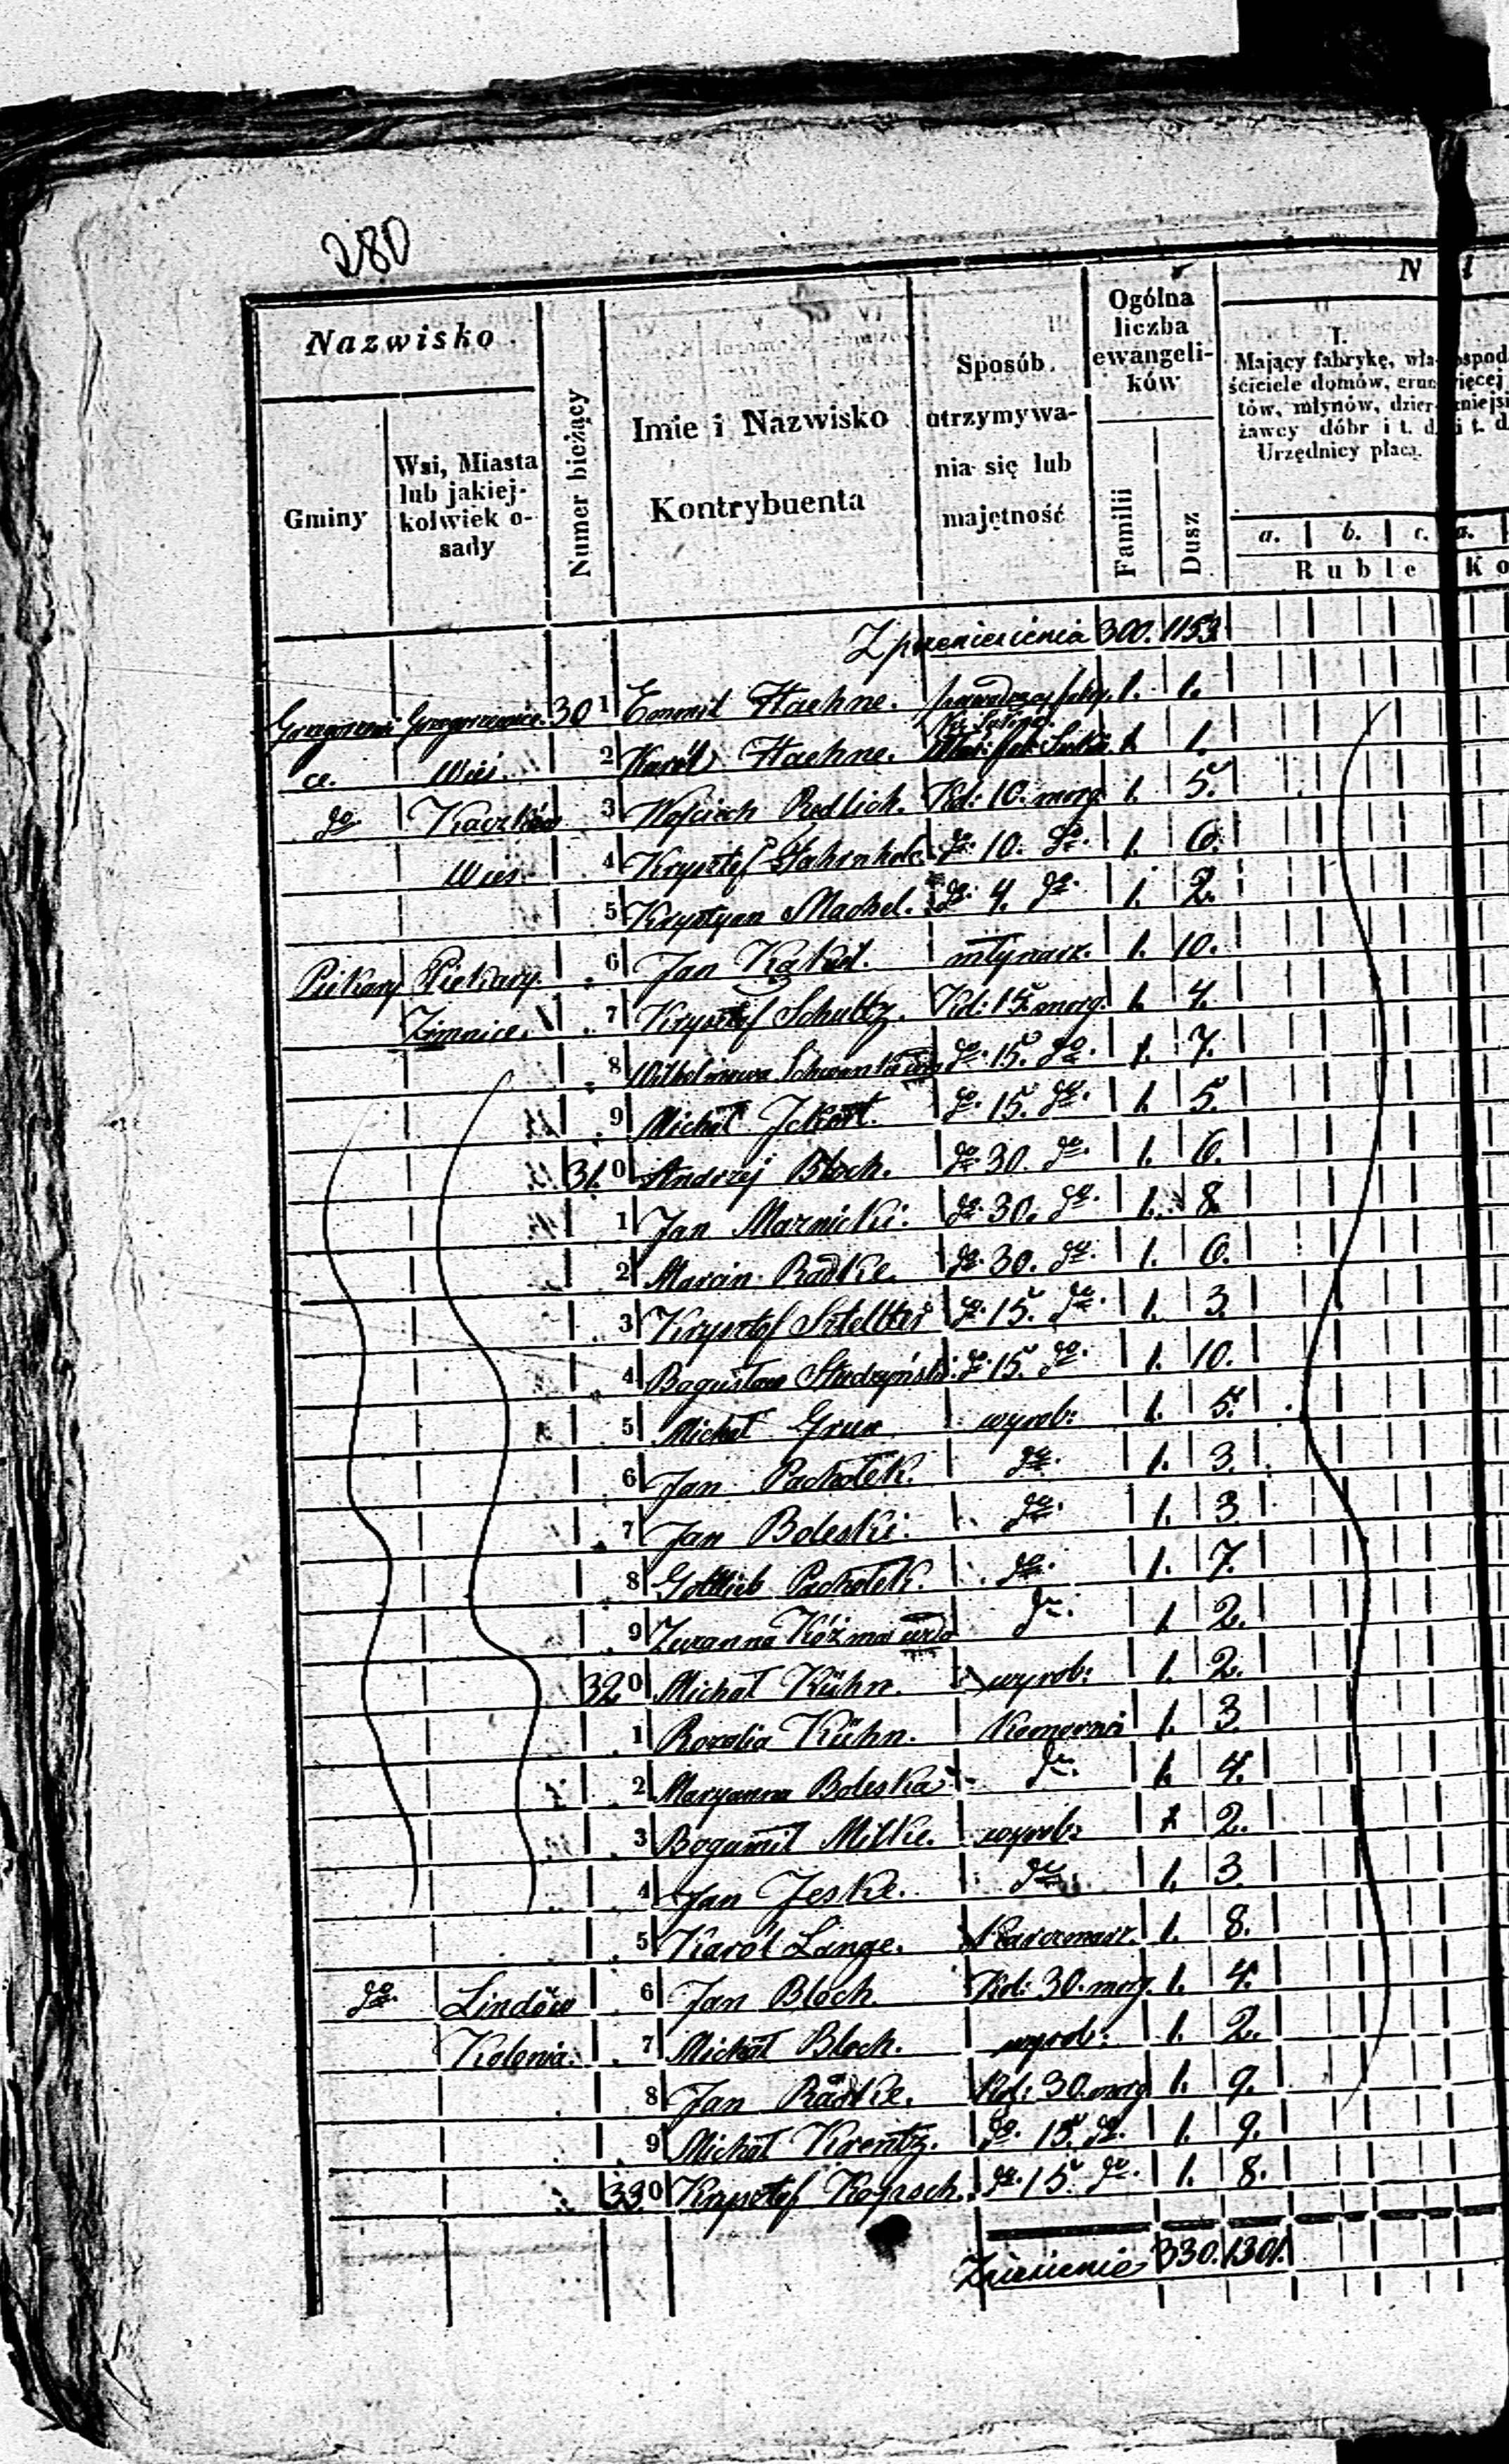 280
Nazwisko
Gminy
Wsi, Miasta lub jakiej-kolwiek o-sady
Numer bieżący
Imie i Nazwisko Kontrybuenta
Sposób utrzymywa-nia się lub majętność
Ogólna liczba ewangeli-ków
Familii
Dusz
N
I.
Mający fabrykę, wła-
ściciele domów, grun
tów, młynów, dzier-
żawcy dóbr i t. d.
Urzędnicy płacą.
a. b. c. a.
Ruble Ko
Z przeniesienia 300. 1153.
301 Haehne. 1. 1.
ce. Wieś. 2 Karól Haehne. 1. 1.
do Kaczków 3 Wojciech Redlich. Kol: 10. morg. 1. 5.
Wieś. 4 Krysztof do. 10. do. 1. 6.
5 Krystyan Machel. do. 4. do. 1. 2.
Piekary Piekary. 6 Jan młynarz. 1. 10.
Zimnice. 7 Krysztof Schultz. Kol: 15. morg. 1. 4.
8 do. 15. do. 1. 7.
9 Michał Jckert. do. 15. do. 1. 5.
310 Andrzej Bloch. do. 30. do. 1. 6.
1 Jan Marnicki. do. 30. do. 1. 8.
2 Marcin Radtke. do. 30. do. 1. 6.
3 Krysztof do. 15. do. 1. 3.
4 Bogusław Studzyński. do. 15. do. 1. 10.
5 Michał Grun wyrob: 1. 5.
6 Jan Pachołek. do. 1. 3.
7 Jan Boleski. do. 1. 3.
8 Gottlieb Pachołek. do. 1. 7.
9 Zuzanna Koźma do. 1. 2.
320 Michał Kühn. wyrob: 1. 2.
1 Rozalia Kühn. 1. 3.
2 Maryanna Boleska do. 1. 4.
3 Bogumił Milke. wyrob: 1 2.
4 Jan Jeske. do. 1. 3.
5 Karól Lange. Karczmarz. 1. 8.
do. Lindów 6 Jan Bloch. Kol: 30. morg. 1. 4.
Kolonia. 7 Michał Bloch. wyrob: 1. 2.
8 Jan Radtke. Kol: 30. morg 1. 9.
9 Michał Krentz. do. 15. do. 1. 9.
330 Krysztof do. 15. do. 1. 8.
Zniesienie 330. 1301.